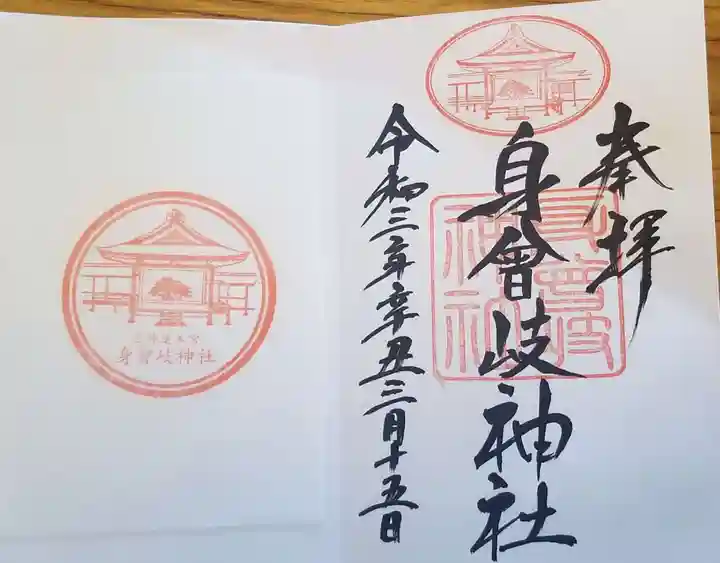 奉拝
身曾岐神社
令和三年辛丑三月十五日
身曾岐神社
身曾岐神社